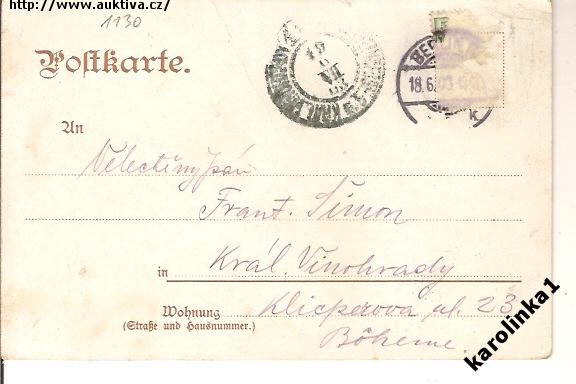 http://www.auktiva.cz/
1130
Postkarte.
18.6.03
19
VII
An
Velectěný pán
Frant. Šimon
Král. Vinohrady
in
Klicperova ul. 23
Wohnung
(Straße und Hausnummer.)
Böheme.
karolinka1